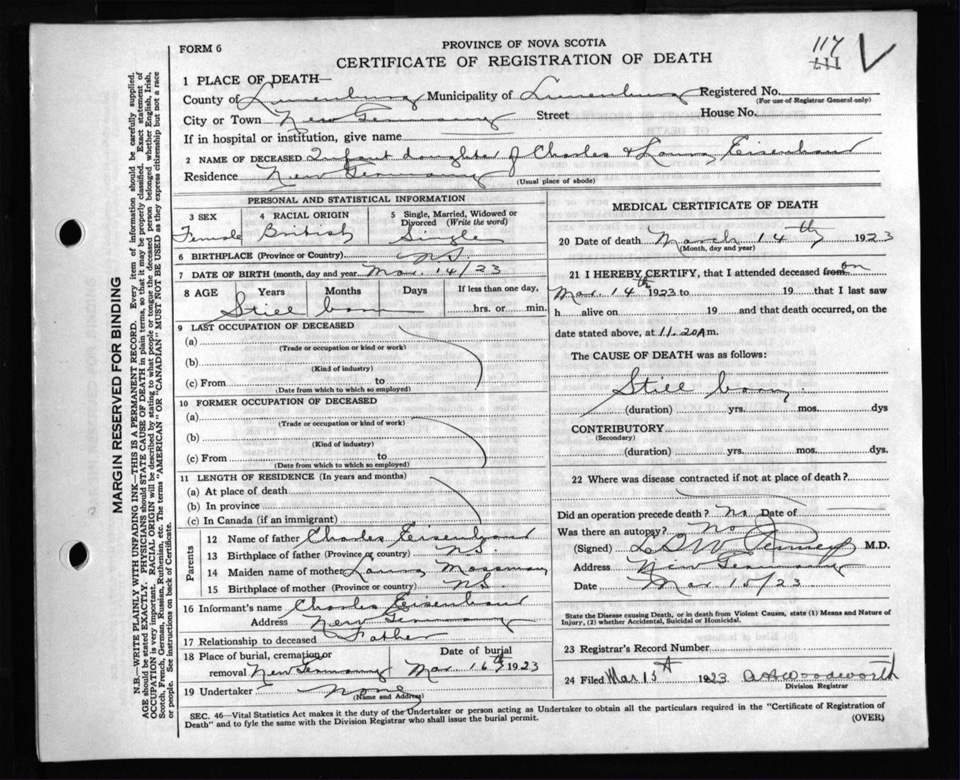 FORM 6
PROVINCE OF NOVA SCOTIA
CERTIFICATE OF REGISTRATION OF DEATH
117
111
1 PLACE OF DEATH—
County of Lunenburg Municipality of Lunenburg Registered No.
(For use of Registrar General only)
City or Town New Germany Street House No.
If in hospital or institution, give name
2 NAME OF DECEASED Infant daughter of Charles & Laura Eisenhaur
Residence New Germany
(Usual place of abode)
PERSONAL AND STATISTICAL INFORMATION
3 SEX
Female
4 RACIAL ORIGIN
British
5 Single, Married, Widowed or
Divorced (Write the word)
Single
6 BIRTHPLACE (Province or Country) N.S.
7 DATE OF BIRTH (month, day and year) Mar. 14/23
8 AGE Years Months Days If less than one day,
Still born hrs. or min.
9 LAST OCCUPATION OF DECEASED
(a)
(Trade or occupation or kind of work)
(b)
(Kind of industry)
(c) From to
(Date from which to which so employed)
10 FORMER OCCUPATION OF DECEASED
(a)
(Trade or occupation or kind of work)
(b)
(Kind of industry)
(c) From to
(Date from which to which so employed)
11 LENGTH OF RESIDENCE (In years and months)
(a) At place of death
(b) In province
(c) In Canada (if an immigrant)
Parents
12 Name of father Charles Eisenhaur
13 Birthplace of father (Province or country) N.S.
14 Maiden name of mother Laura Mossman
15 Birthplace of mother (Province or country) N.S.
16 Informant's name Charles Eisenhaur
Address New Germany
17 Relationship to deceased Father
18 Place of burial, cremation or
removal New Germany
Date of burial
Mar. 16th 1923
19 Undertaker None
(Name and Address)
MEDICAL CERTIFICATE OF DEATH
20 Date of death March 14th 1923
(Month, day and year)
21 I HEREBY CERTIFY, that I attended deceased from on
Mar. 14th 1923 to 19 that I last saw
h alive on 19 and that death occurred, on the
date stated above, at 11.20 A m.
The CAUSE OF DEATH was as follows:
Still born
(duration) yrs. mos. dys
CONTRIBUTORY
(Secondary)
(duration) yrs. mos. dys.
22 Where was disease contracted if not at place of death?
Did an operation precede death? No Date of
Was there an autopsy? No
(Signed) M.D.
Address New Germany
Date Mar 15/23
State the Disease causing Death, or in death from Violent Causes, state (1) Means and Nature of
Injury, (2) whether Accidental, Suicidal or Homicidal.
23 Registrar's Record Number
24 Filed Mar 15th 1923 Woodworth
Division Registrar
SEC. 46—Vital Statistics Act makes it the duty of the Undertaker or person acting as Undertaker to obtain all the particulars required in the "Certificate of Registration of
Death" and to fyle the same with the Division Registrar who shall issue the burial permit.
(OVER)
MARGIN RESERVED FOR BINDING
N.B.—WRITE PLAINLY WITH UNFADING INK—THIS IS A PERMANENT RECORD. Every item of information should be carefully supplied.
AGE should be stated EXACTLY. PHYSICIANS should STATE CAUSE OF DEATH in plain terms, so that it may be properly classified. Exact statement of
OCCUPATION is very important. RACIAL ORIGIN will be described by stating to what people or tongue the deceased person belonged whether English, Irish,
Scotch, French, German, Russian, Ruthenian, etc. The terms "AMERICAN" OR "CANADIAN" MUST NOT BE USED as they express citizenship but not a race
or people. See instructions on back of Certificate.